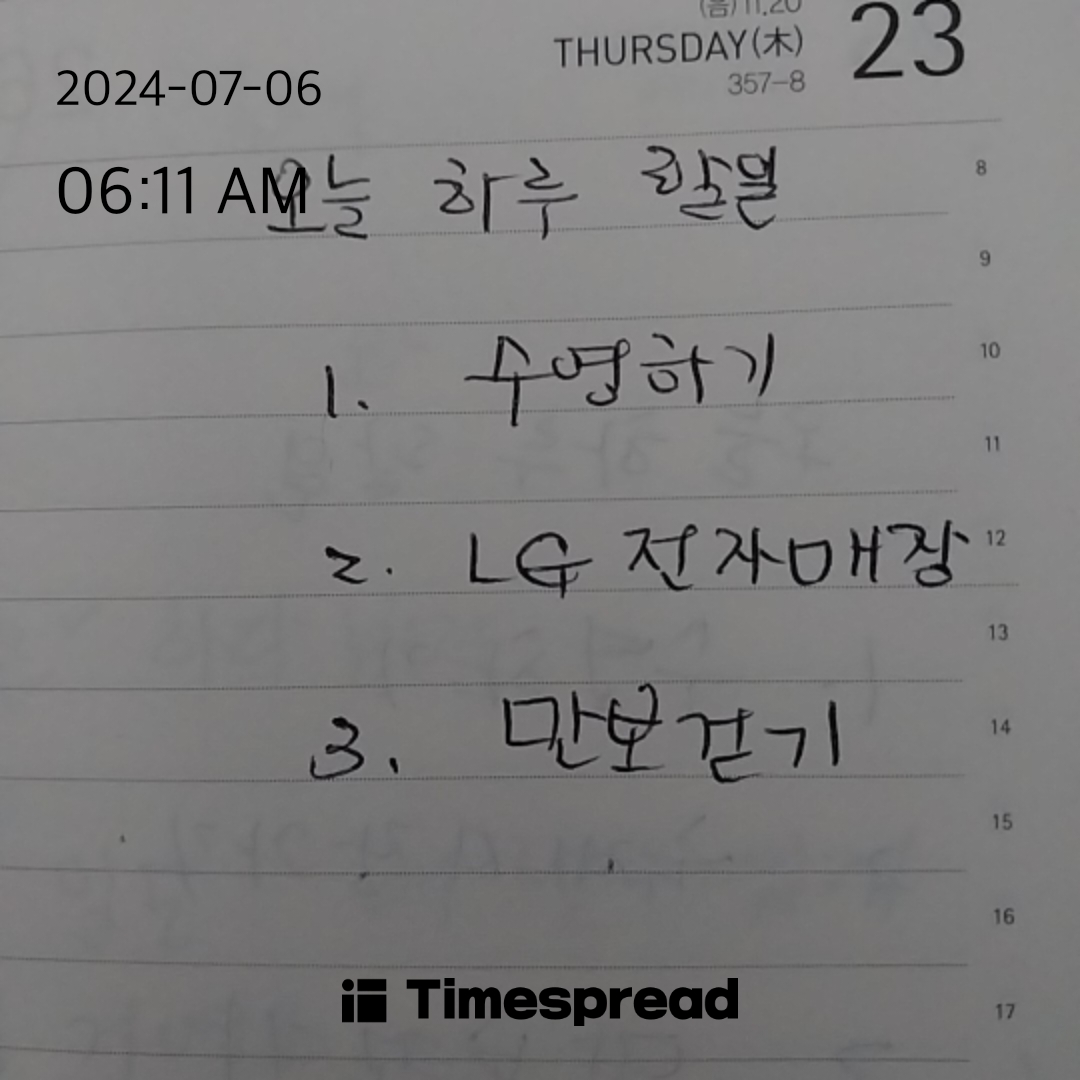 (음) 11.20
THURSDAY(木) 23
357-8
2024-07-06
06:11 AM
오늘 하루 할일
8
9
1. 수영하기
10
11
2. LG 전자매장
12
13
3. 만보걷기
14
15
16
Timespread
17